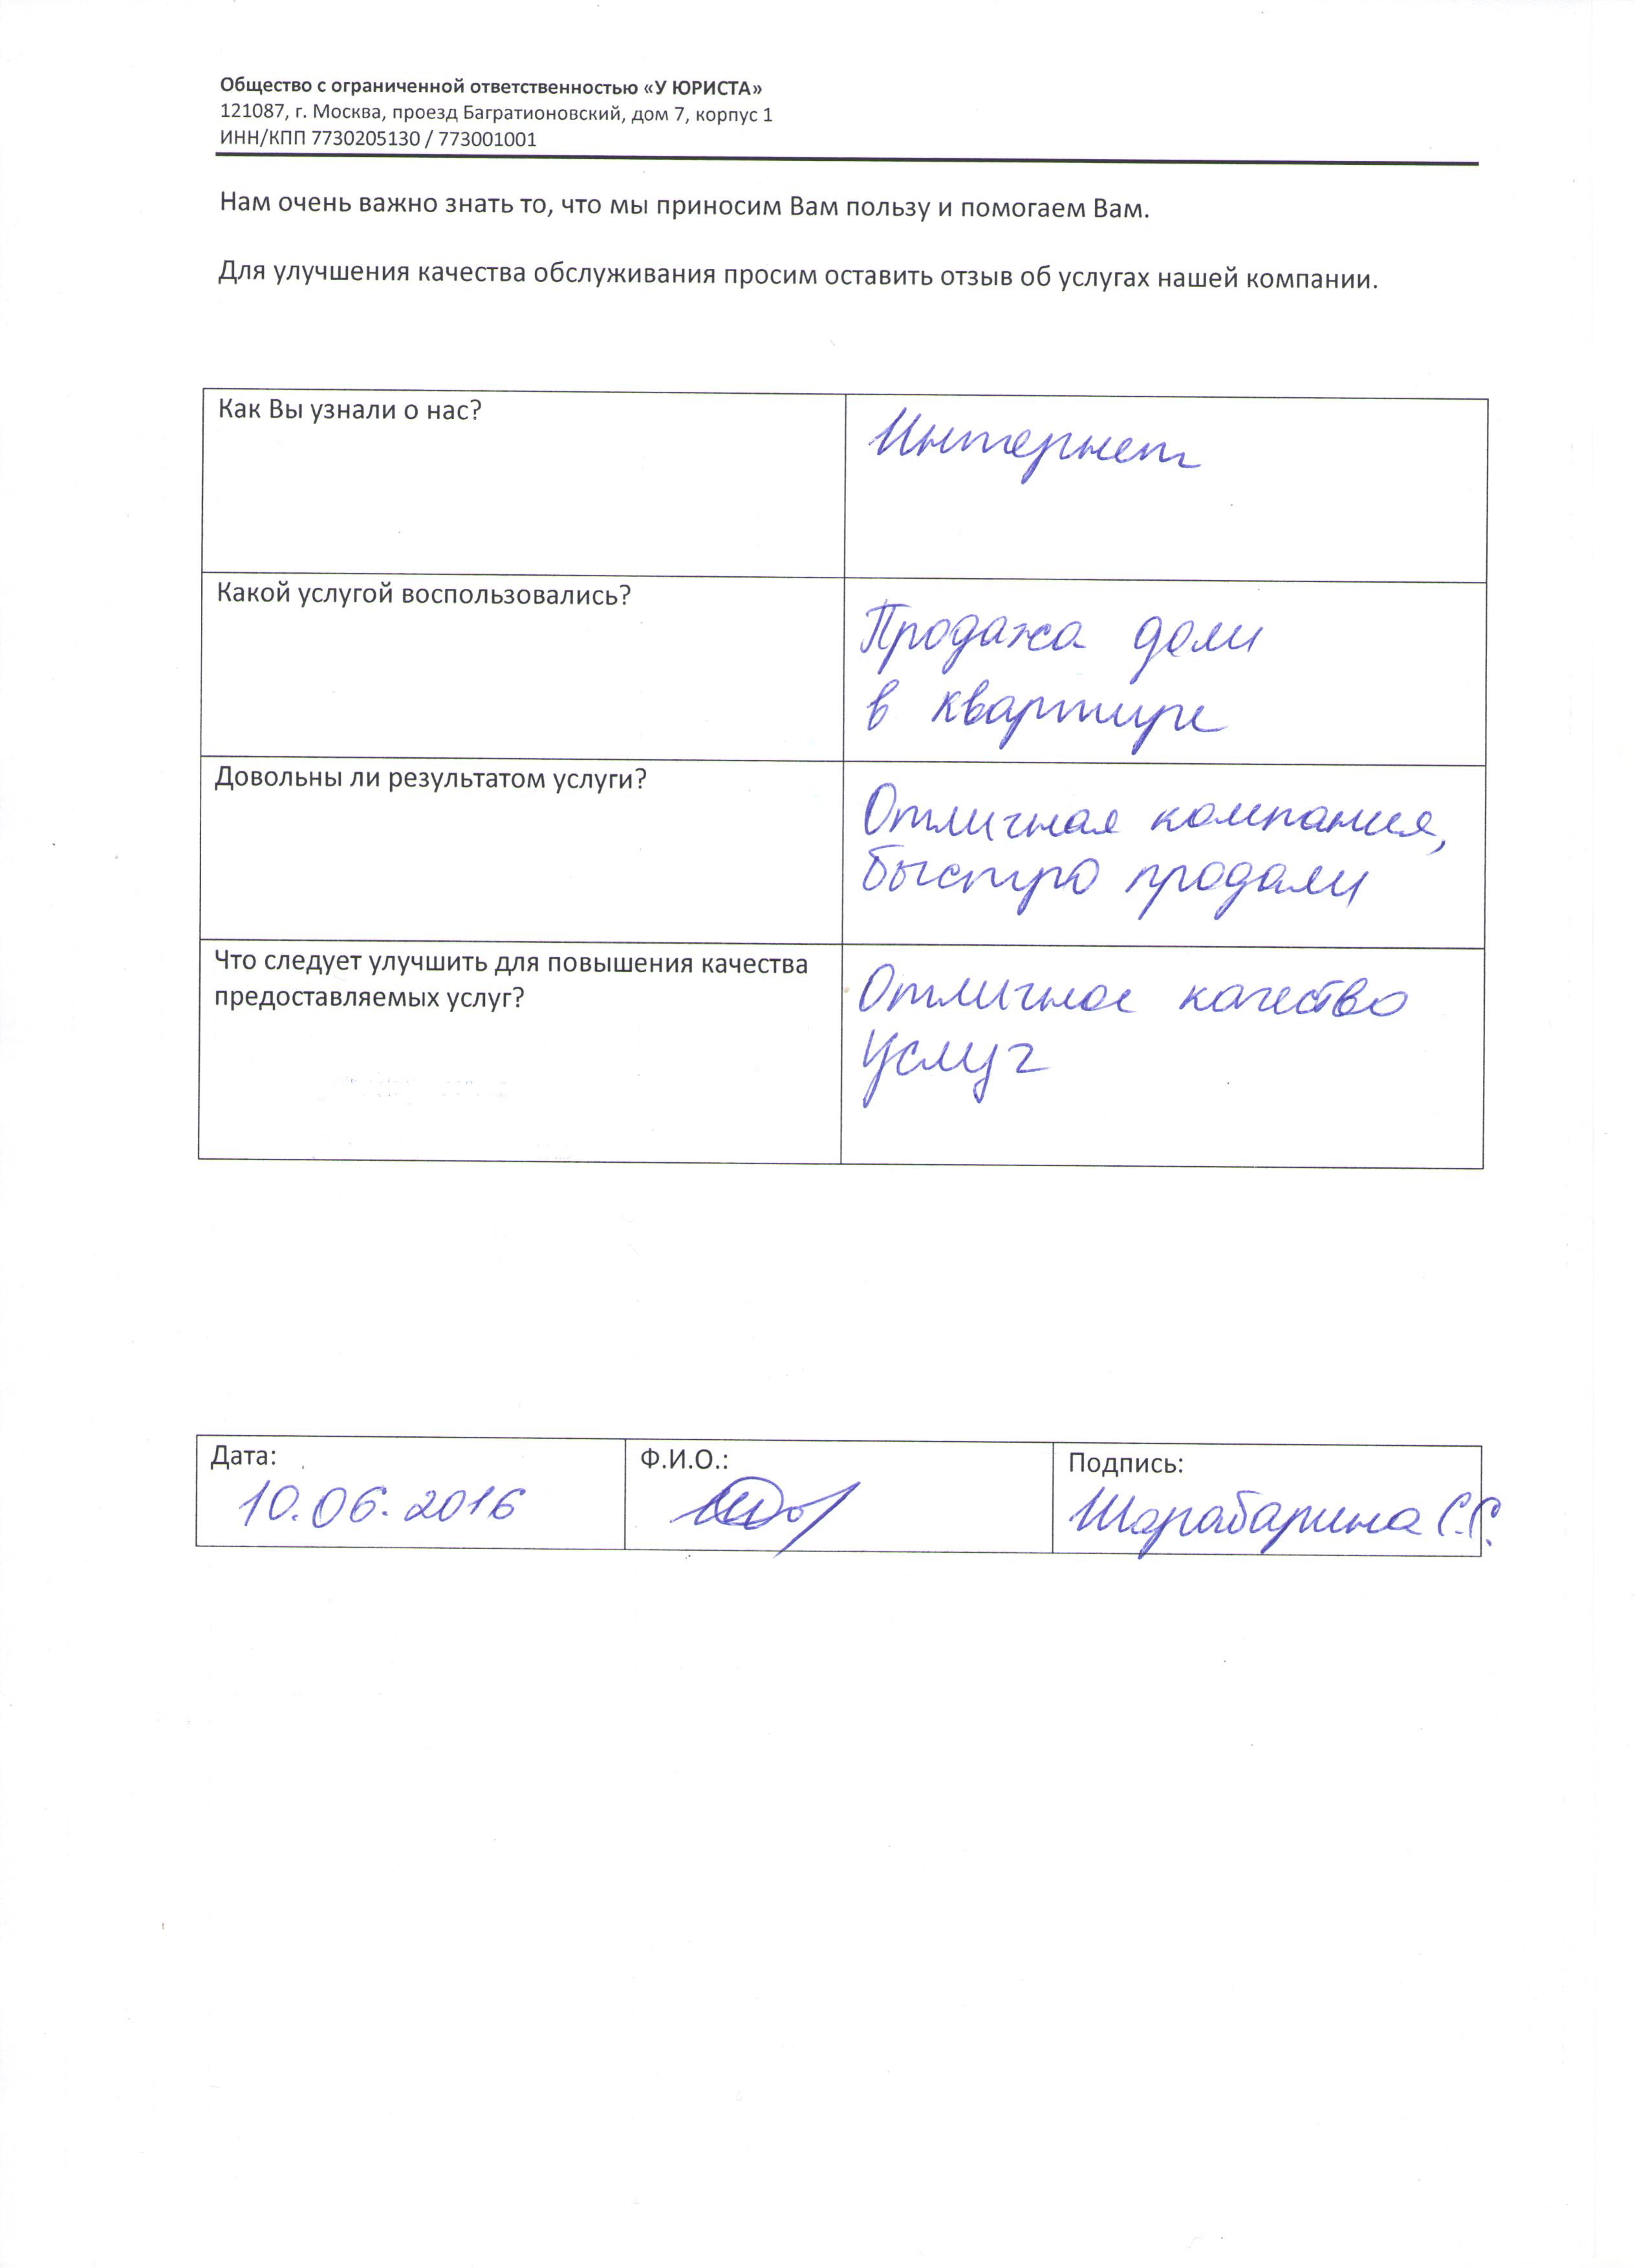 Общество с ограниченной ответственностью «У ЮРИСТА»
121087, г. Москва, проезд Багратионовский, дом 7, корпус 1
ИНН/КПП 7730205130 / 773001001
Нам очень важно знать то, что мы приносим Вам пользу и помогаем Вам.
Для улучшения качества обслуживания просим оставить отзыв об услугах нашей компании.
Как Вы узнали о нас?
Интернет
Какой услугой воспользовались?
Продажа доли
в квартире
Довольны ли результатом услуги?
Отличная компания,
быстро продали
Что следует улучшить для повышения качества
предоставляемых услуг?
Отличное качество
услуг
Дата:
10.06.2016
Ф.И.О.:
Подпись:
Шарабарина С.С.